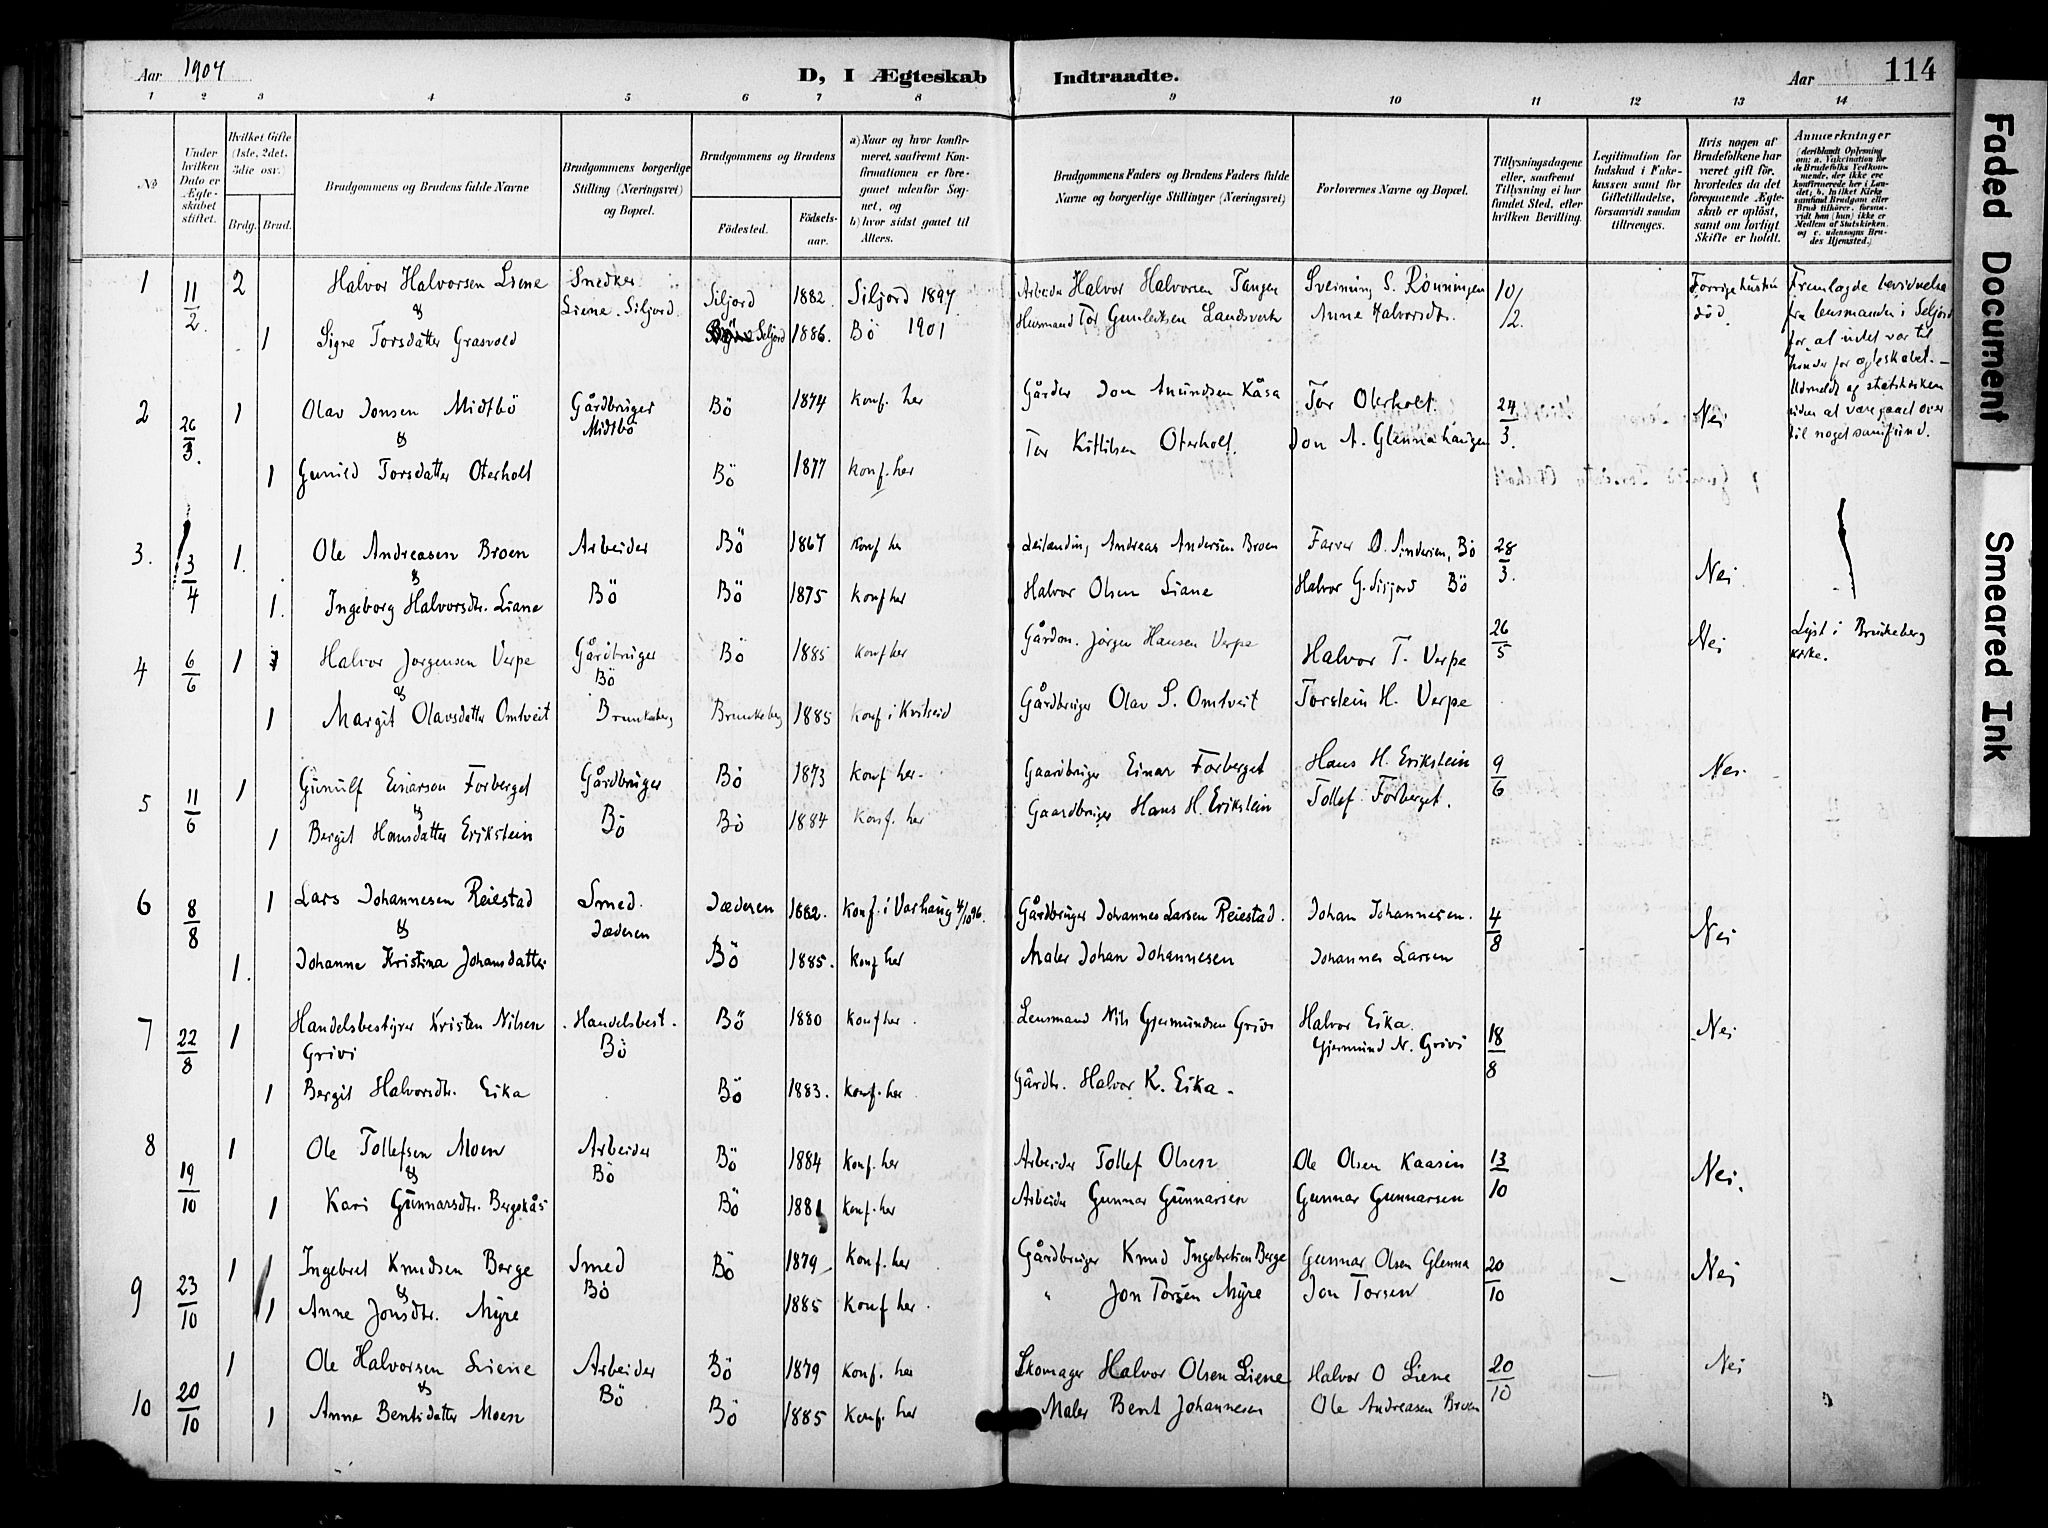 Aar 1907 D, I Ægteskab Indtraadte. Aar 114
1 2 3 4 5 6 7 8 9 10 11 12 13 14
No
Under hvilken Dato er Ægteskabet stiftet.
Hvilket Gifte (1ste, 2det, 3die osv.)
Brdg. Brud.
Brudgommens og Brudens fulde Navne
Brudgommens borgerlige Stilling (Næringsvei) og Bopæl.
Brudgommens og Brudens
Fødested.
Fødselsaar.
a) Naar og hvor konfirmeret, saafremt Konfirmationen er foregaaet udenfor Sognet, og
b) hvor sidst gaaet til Alters.
Brudgommens Faders og Brudens Faders fulde Navne og borgerlige Stillinger (Næringsvei)
Forlovernes Navne og Bopæl.
Tillysningsdagene eller, saafremt Tillysning ei har fundet Sted, efter hvilken Bevilling.
Legitimation for Indskud i Enkekassen samt for Giftetilladelse, forsaavidt saadan tiltrænges.
Hvis nogen af Brudefolkene har været gift før, hvorledes da det foregaaende Ægteskab er opløst, samt om lovligt Skifte er holdt.
Anmerkninger
(deriblandt Oplysning om: a. Vakcination for de Brudefolks Vedkommende, der ikke ere konfirmerede her i Landet; b. hvilket Kirkesamfund Brudgom eller Brud tilhører, forsaavidt han (hun) ikke er Medlem af Statskirken og c. udensogns Brudes Hjemsted.)
1 11/2 2 Halvor Halvorsen Liene Snedker Siljord 1882 Siljord 1897 Arbeider Halvor Halvorsen Tangen Sveinung S. Rönningen 10/2. Forrige hustru död.
& Liene. Siljord.
1 Signe Torsdatter Grasvold Seljord 1886. Bö 1901 Husmand Tor Gunleiksen Landsverk Anne Halvorsdtr.
Fremlagde bevidnelse
fra lensmanden i Seljord
for at intet var til
hinder for ægteskabet. –
Udmeldt af statskirken
uden at være gaaet over
til noget samfund.
2 26/3. 1 Olav Jonsen Midtbö Gårdbruger Bö 1874 Konf. her Gårdbr Jon Amundsen Kåsa Tor Oterholt. 24/3. Nei
& Midtbö
1 Gunild Torsdatter Oterholt Bö 1877 Konf. her Tor Kittilsen Oterholt. Jon A. Glennahaugen
3. 3/4 1. Ole Andreasen Broen Arbeider Bö 1867 Konf her Andreas Andersen Broen Farver O. Andersen, Bö 28/3. Nei
&
1. Ingeborg Halvorsdtr. Liane Bö Bö 1875 Konf her Halvor Olsen Liane Halvor G. Bö
4 6/6 1 Halvor Jørgensen Verpe Gårdbruger Bö 1885 Konf her Gårdm. Jørgen Hansen Verpe Halvor T. Verpe 26/5 Nei Lyst i Brunkeberg
& Bö kirke.
1 Margit Olavsdatter Omtveit Brunkeberg Brunkeberg 1885 Konf i Kvitseid Gårdbruger Olav S. Omtveit Torstein H. Verpe
5 11/6 1 Gunulf Einarsen Forberget Gårdbruger Bö 1873 Konf her. Gaardbruger Einar Forberget Hans H. Erikstein 9/6 Nei
&
1 Bergit Hansdatter Erikstein Bö Bö 1884 Konf. her Gaardbruger Hans H. Erikstein Tollef Forberget.
6 8/8 1 Lars Johannesen Reiestad Smed. Jæderen 1882. Konf. i Varhaug 4/10 96. Gårdbruger Johannes Larsen Reiestad. Johan Johannesen. 4/8 Nei
& Jæderen
1. Johanne Kristina Johansdatter Bö 1885. Konf her Maler Johan Johannesen Johannes Larsen
7 22/8 1 Handelsbestyrer Kristen Nilsen Handelsbest. Bö 1880 Konf her. Lensmand Nils Gjermundsen Grivi Halvor Eika. 18/8 Nei
Grivi Bö Gjermund N. Grivi
1 Bergit Halvorsdtr. Eika Bö 1883. Konf. her Gårdbr. Halvor K. Eika.
8 19/10 1 Ole Tollefsen Moen Arbeider Bö 1884 Konf. her Arbeider Tollef Olsen Ole Olsen Kaasin 13/10 Nei.
& Bö
1 Kari Gunnarsdtr. Bergskås Bö 1881 Konf. her Arbeider Gunnar Gunnarsen Gunnar Gunnarsen
9 23/10 1 1 Ingebret Knudsen Berge Smed Bö 1879 Konf. her Gårdbruger Knud Ingebretsen Berge Gunnar Olsen Glenna 20/10 – Nei
& Bö
1 Anne Jonsdtr. Myre 1885 Konf her. " Jon Torsen Myre Jon Torsen
10 20/10 1 Ole Halvorsen Liene Arbeider Bö 1879 Konf. her Skomager Halvor Olsen Liene Halvor O Liene 20/10 — Nei
& Bö
1 Anna Bentsdatter Moen Bö 1885 Konf. her Maler Bent Johannesen Ole Andreasen Broen
Faded Document
Smeared Ink